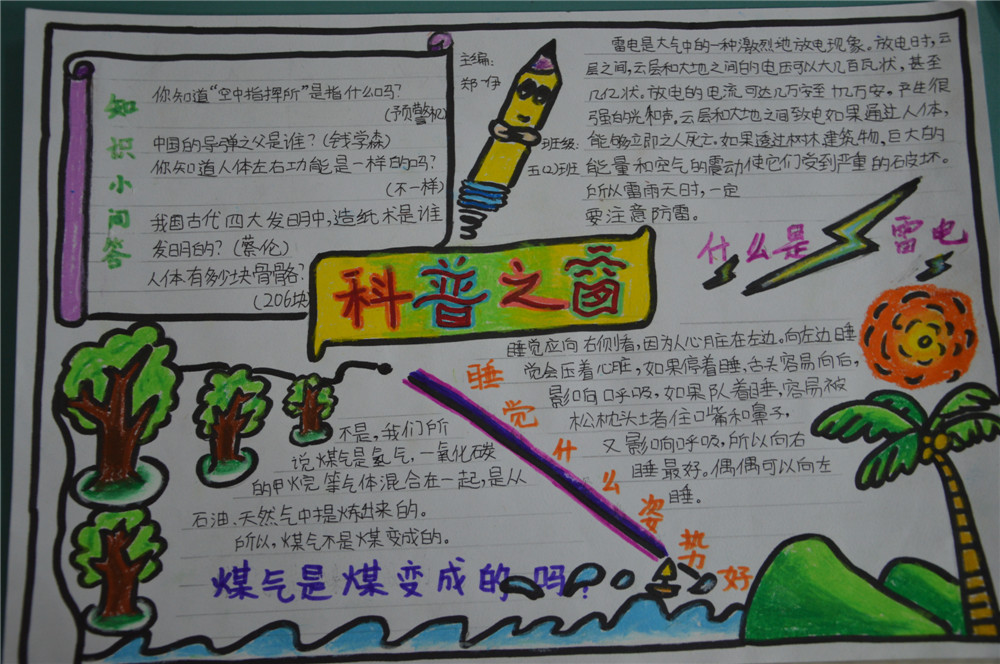 知识小百答
你知道“空中指挥所”是指什么吗?
(预警机)
中国的导弹之父是谁?(钱学森)
你知道人体左右功能是一样的吗?
(不一样)
我国古代四大发明中,造纸术是谁
发明的?(蔡伦)
人体有多少块骨骼?
(206块
主编:
郑伊
班级:
五(2)班
雷电是大气中的一种激烈地放电现象。放电时,云
层之间,云层和大地之间的电压可以大几百瓦状,甚至
几亿状。放电的电流可达几万安至十几万安。产生很
强的光和声。云层和大地之间致电如果通过人体,
能够立即之人死亡。如果透过林林建筑物,巨大的
能量和空气的震动使它们受到严重的破坏。
所以雷雨天时,一定
要注意防雷。
什么是雷电
科普之窗
睡觉应向右侧着,因为人心脏在左边。向左边睡
觉会压着心脏,如果停着睡,舌头容易向后,
影响呼吸,如果队着睡,容易被
松枕头堵者住口嘴和鼻子,
又影响呼吸,所以向右
睡最好。偶偶可以向左
睡。
睡觉什么姿势好
不是,我们所
说煤气是氢气,一氧化碳
的甲烷等气体混合在一起,是从
石油、天然气中提炼出来的。
所以,煤气不是煤变成的。
煤气是煤变成的吗?